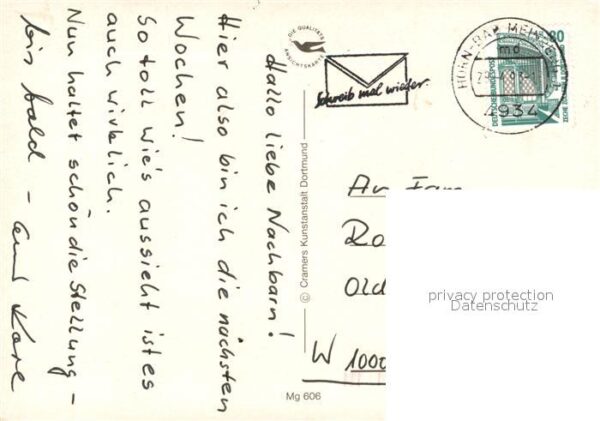 Hallo liebe Nachbarn!
Hier also bin ich die nächsten
Wochen!
So toll wie's aussieht ist es
auch wirklich.
Nun haltet schön die Stellung -
bis bald -
DIE QUALITÄTS
ANSICHTSKARTE
Schreib mal wieder
HORN-BAD MEINBERG 1
md
4934
80
DEUTSCHE BUNDESPOST
© Cramers Kunstanstalt Dortmund
Mg 606
An Fam
Ro
Old
W 1000
privacy protection
Datenschutz